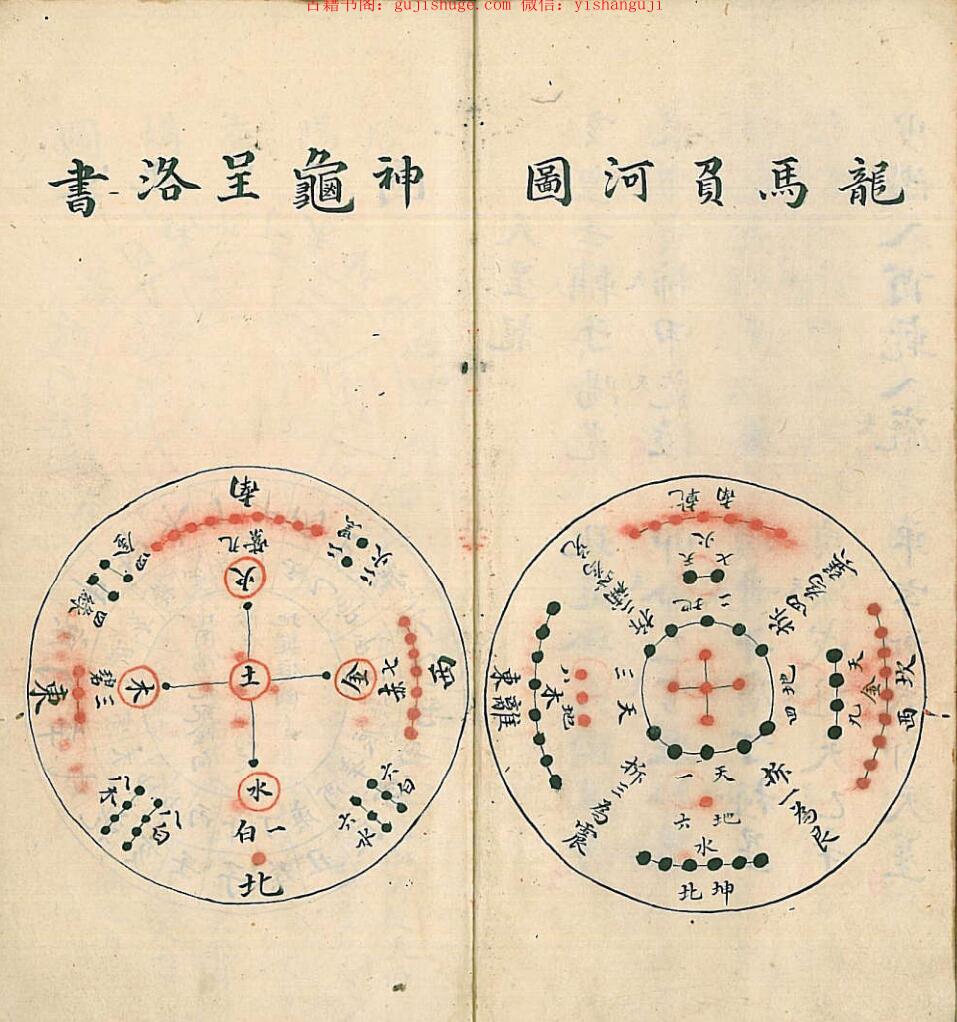 古籍书阁：gujishuge.com 微信：yishanguji
龍馬負河圖
神龜呈洛書
南乾
七火
天
二地
天三
地四
天一
地六
水
北坤
東離
八木
地
天
金
九
西坎
析三為震
析一為艮
南
九紫
火
土
木
金
水
東
三碧
西
七
一白
北
四綠
六白
八白